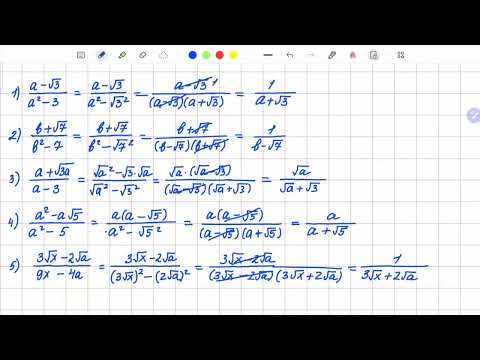 1) (a-√3)/(a²-3) = (a-√3)/(a²-√3²) = (a-√3 1)/((a-√3)(a+√3)) = 1/(a+√3)
2) (b+√7)/(b²-7) = (b+√7)/(b²-√7²) = (b+√7)/((b-√7)(b+√7)) = 1/(b-√7)
3) (a+√3a)/(a-3) = (√a²-√3·√a)/(√a²-√3²) = (√a·(√a-√3))/((√a-√3)(√a+√3)) = √a/(√a+√3)
4) (a²-a√5)/(a²-5) = (a(a-√5))/(a²-√5²) = (a(a-√5))/((a-√5)(a+√5)) = a/(a+√5)
5) (3√x-2√a)/(9x-4a) = (3√x-2√a)/((3√x)²-(2√a)²) = (3√x-2√a)/((3√x-2√a)(3√x+2√a)) = 1/(3√x+2√a)